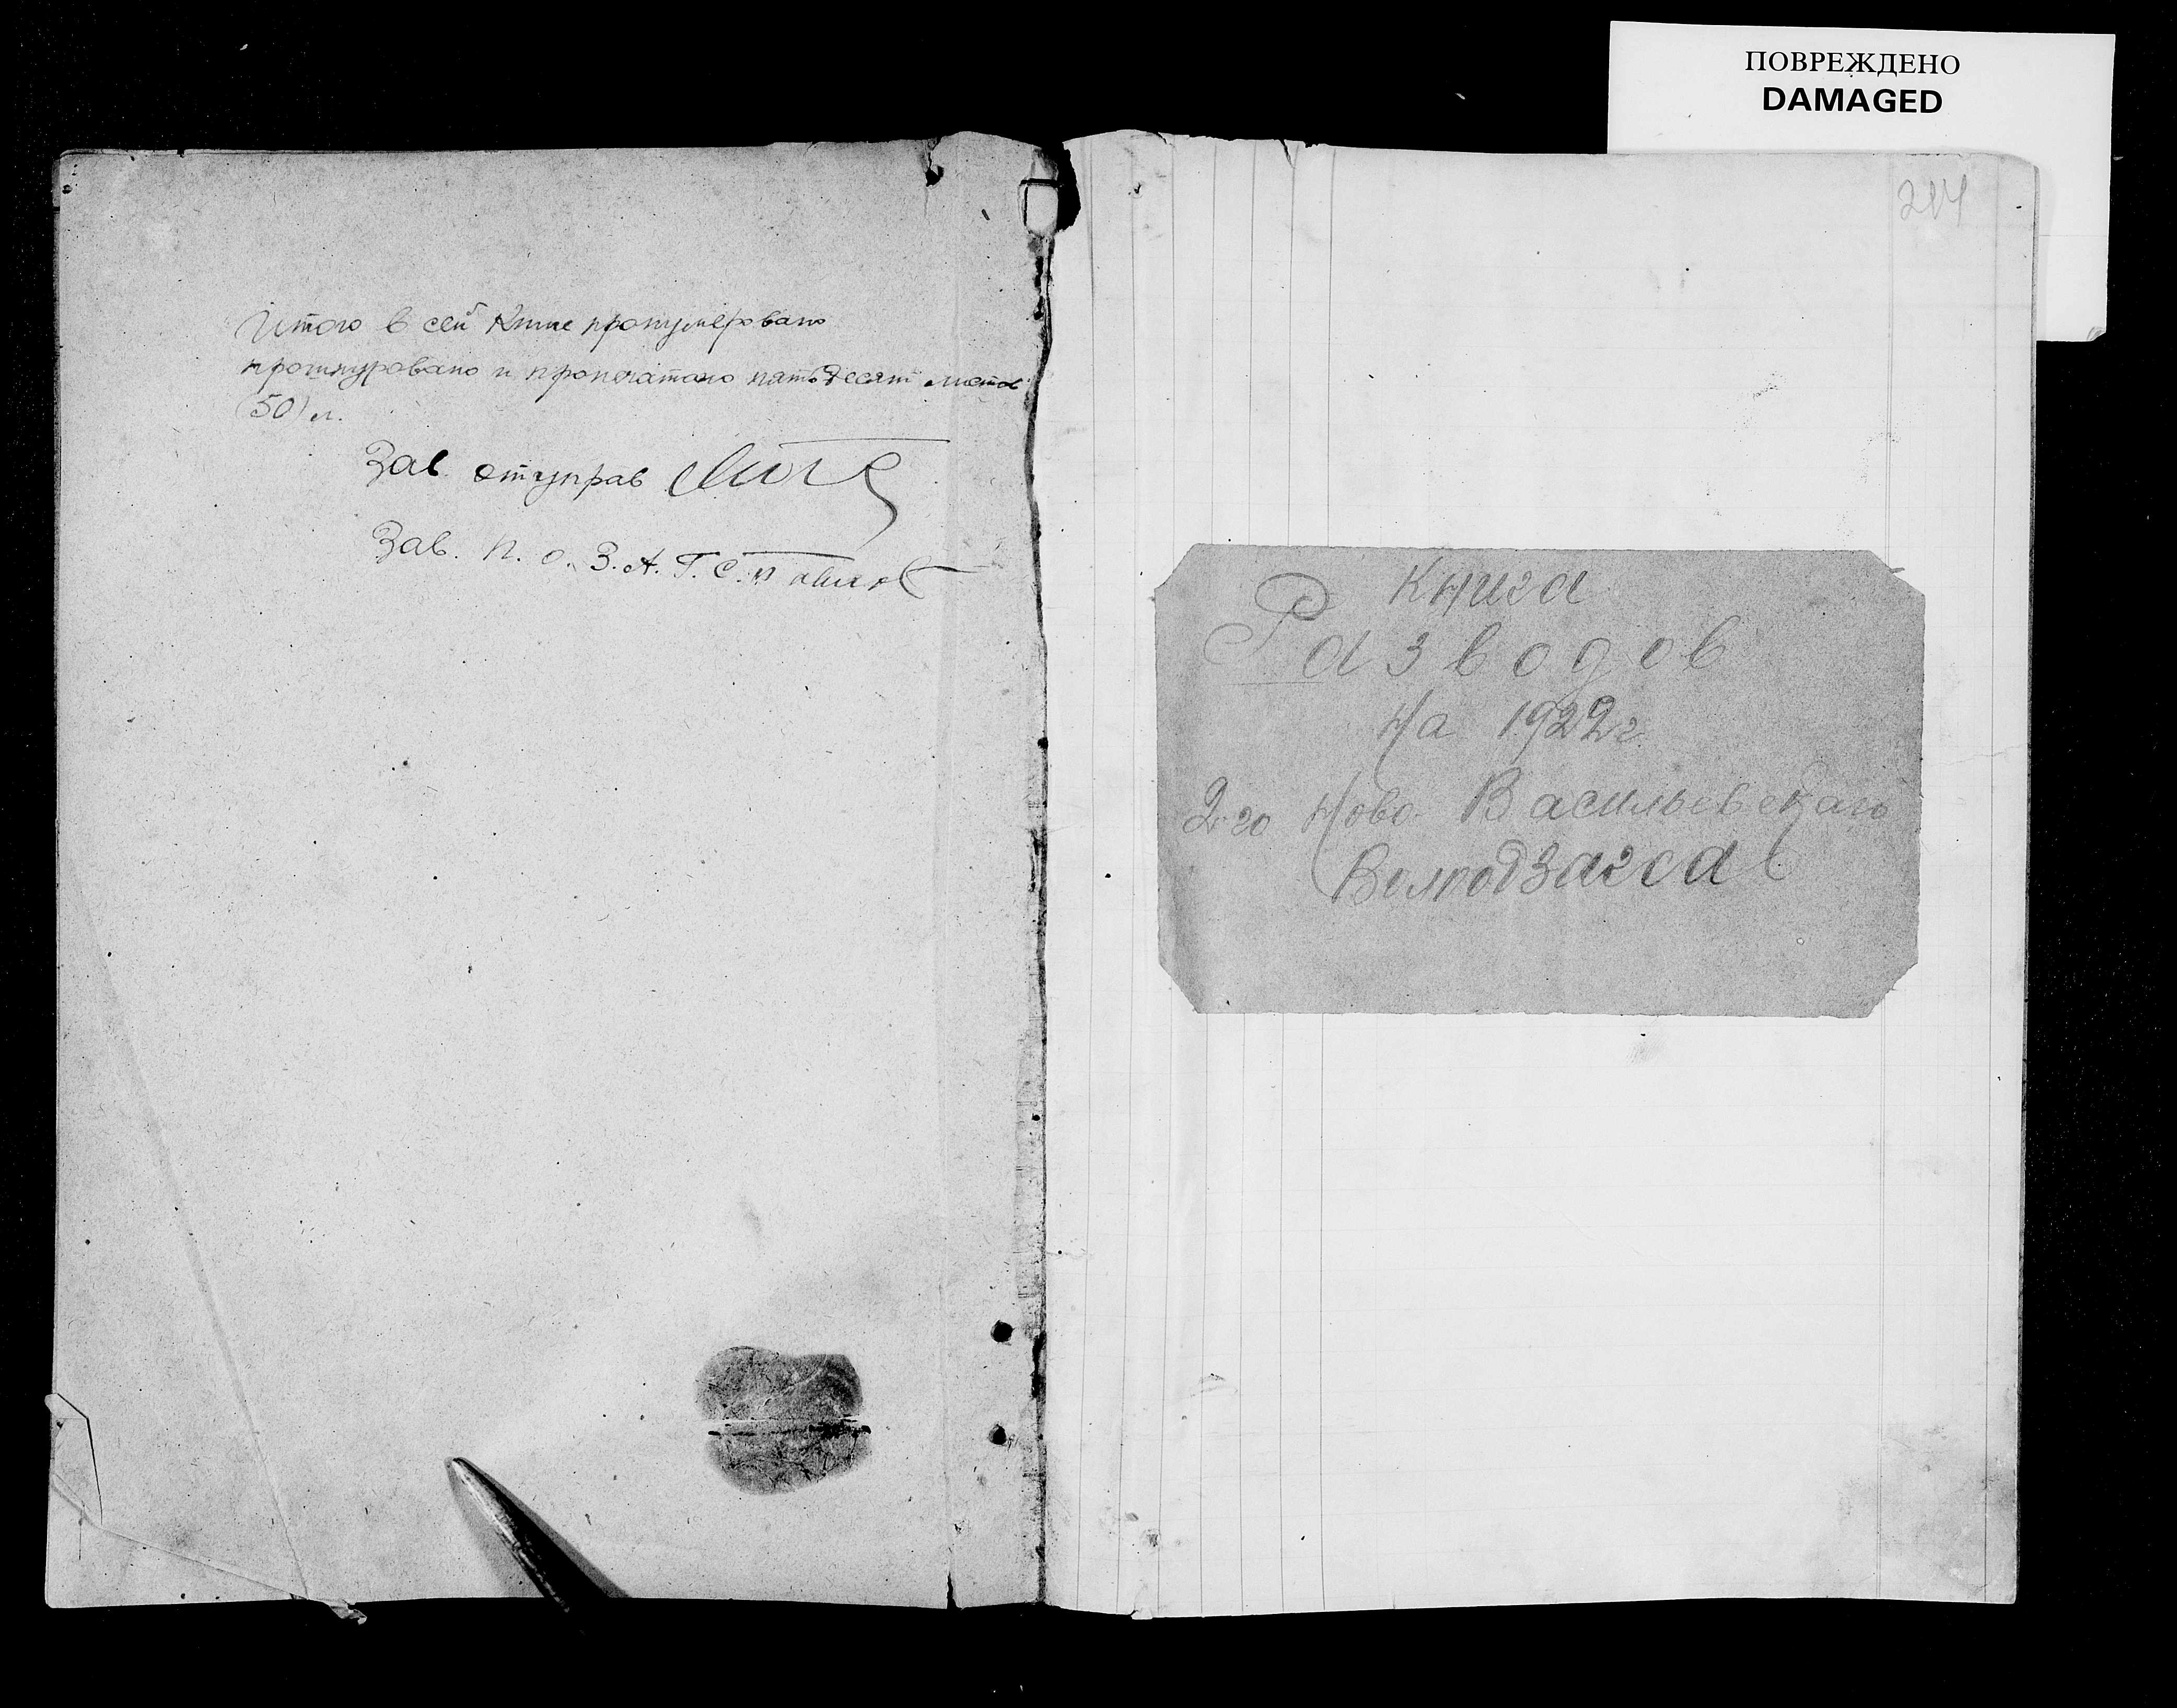 ПОВРЕЖДЕНО
DAMAGED
Итого в сей книге пронумеровано
прошнуровано и пропечатано пятьдесят листов
(50) л.
Зав. отуправ
Зав. п. о. З. А. Г. С.
214
Книга
Разводов
На 1922 г.
2-го Ново-Васильевскаго
ВолподЗагса